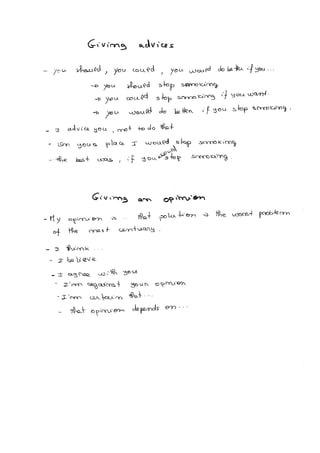 Giving advices
- you should, you could, you would do better if you ...
→ you should stop smoking
→ you could stop smoking if you want.
→ you would do better if you stop smoking.
- I advice you, not to do that
- in your place I would stop smoking
- the best was, if you would stop smoking
Giving an opinion
- My opinion is .. that polution is the worst problem
of the next century.
- I think ...
- I believe
- I agree with you
- I'm against your opinion
- I'm certain that ...
- that opinion depends on ...